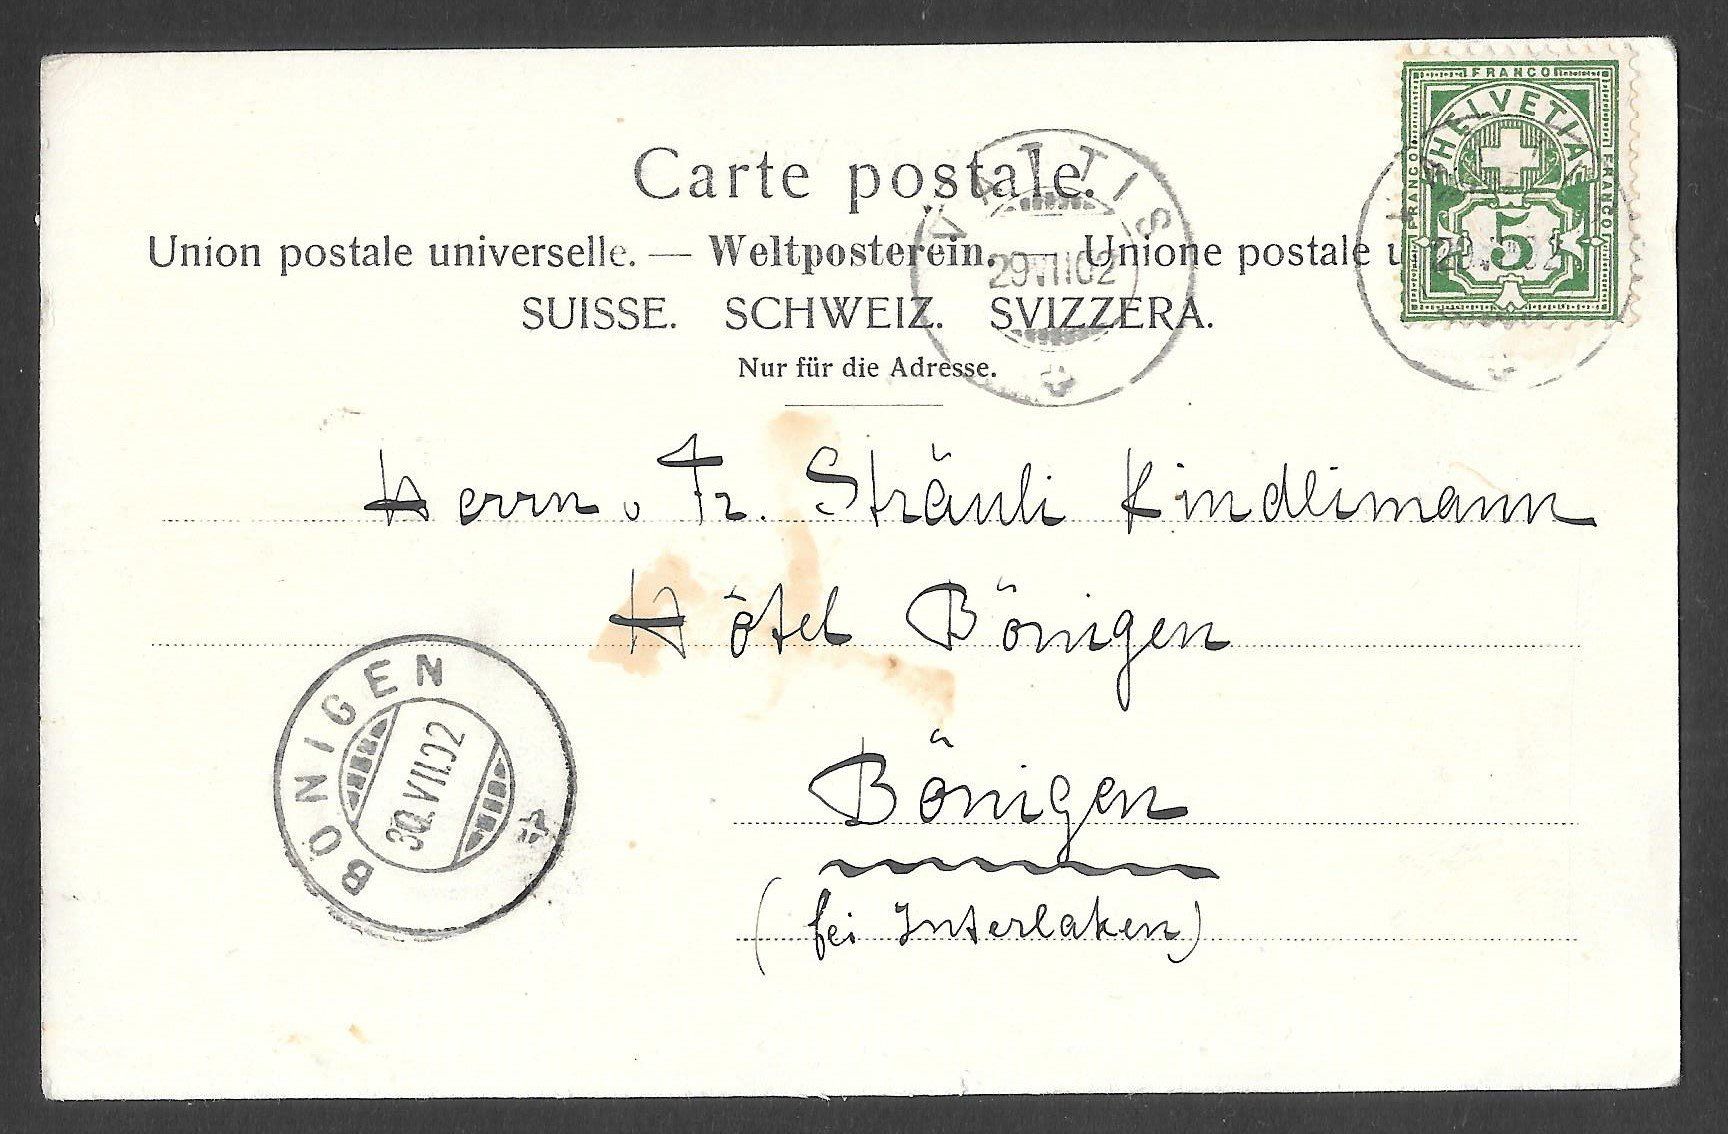 FRANCO
HELVETIA
FRANCO
FRANCO
5
Carte postale.
VÄTTIS
29.VII.02
Union postale universelle. — Weltposterein. — Unione postale u
SUISSE. SCHWEIZ. SVIZZERA.
Nur für die Adresse.
Herrn u Fr. Sträuli Kindlimann
Hôtel Bönigen
Bönigen
(bei Interlaken)
BÖNIGEN
30.VII.02